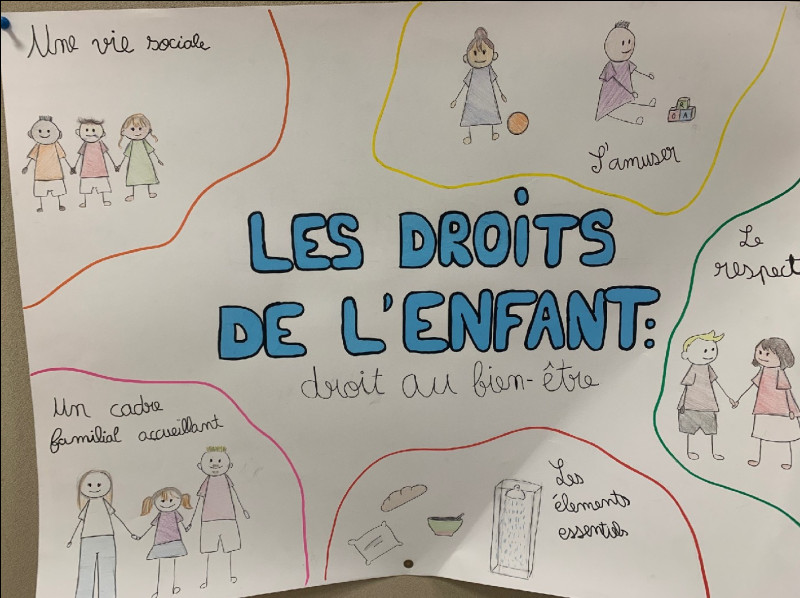 Une vie sociale
S'amuser
LES DROITS
DE L'ENFANT:
droit au bien-être
Le
respect
Un cadre
familial accueillant
Les
élements
essentiels